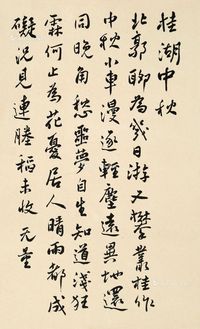 桂湖中秋
北郭聊為幾日游又攀叢桂作
中秋小車漫逐輕塵遠異地還
同晚角愁噩夢自生知道淺狂
霖何止為花憂居人晴雨都成
礙況見連塍稻未收 无量